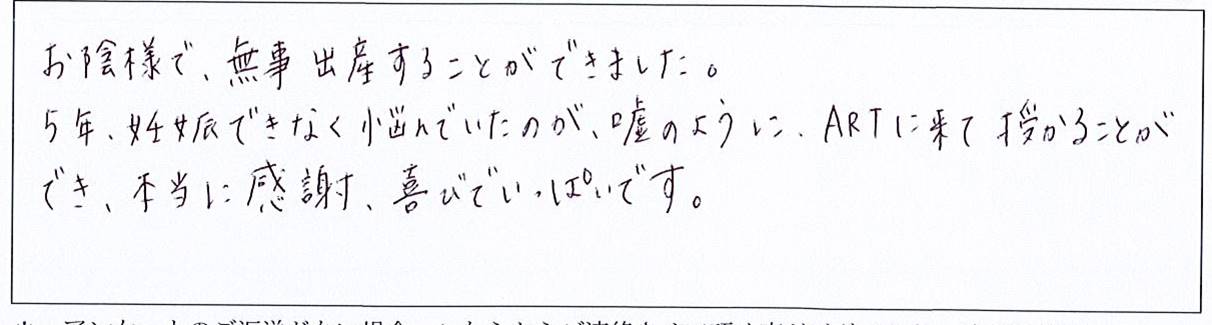 お陰様で、無事出産することができました。
5年、妊娠できなく悩んでいたのが、嘘のように、ARTに来て授かることが
でき、本当に感謝、喜びでいっぱいです。